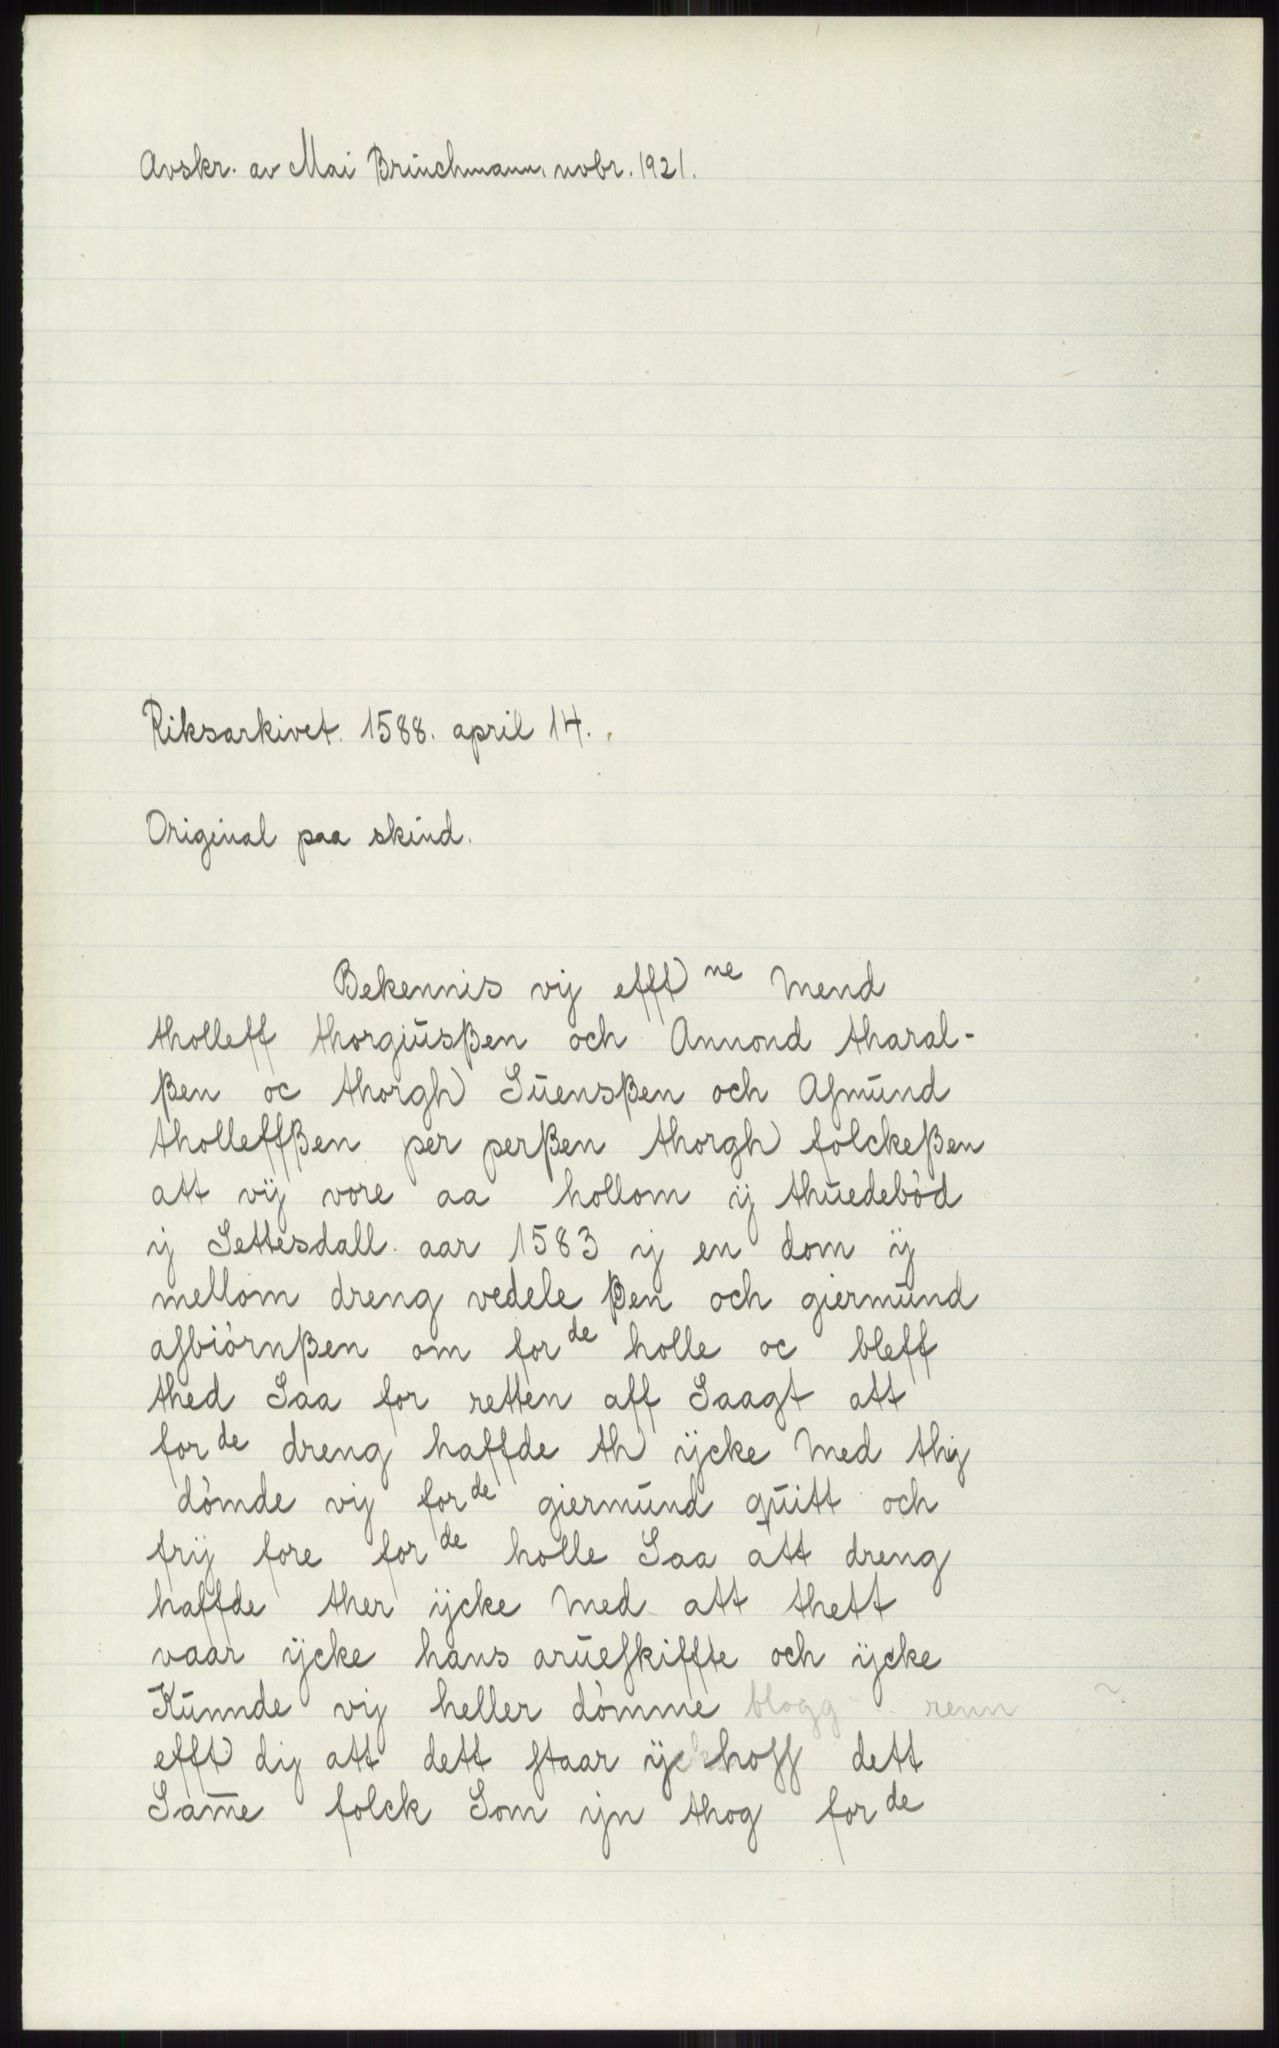 Avskr. av Mai Brüuchmann, novbr. 1921.
Riksarkivet. 1588. april 14.
Original paa skind.
Bekennis vij efft ne Mend
tholleff thorgiusßen och Annond tharal-
ßen oc thorgh Suensßen och Asmund
tholleffßen per perßen thorgh folckeßen
att vij vore aa hollom ij thuedebòd
ij Settesdall. aar 1583 ij en dom ij
mellom dreng vedele ßen och giermund
asbiòrnßen om for de holle oc bleff
thed Saa for retten aff Saagt att
for de dreng haffde th ijcke Med thij
dòmde vij for de giermund quitt och
frij fore for de holle Saa att dreng
haffde ther ijcke Med att thett
vaar ijcke hans arueskiffte och ijcke
Kunnde vij heller dòmme blogg renn ?
efft dij att dett staar ij hoss dett
Same folck Som ijn thog for de